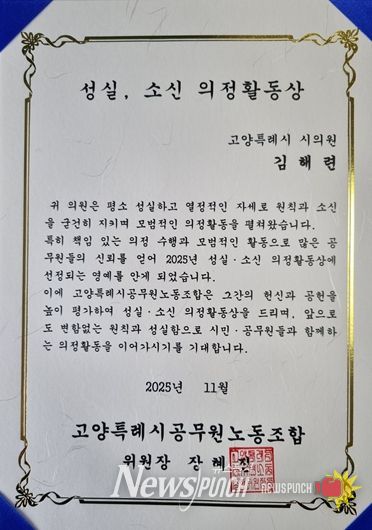 성실, 소신 의정활동상
고양특례시 시의원
김 해 련
귀 의원은 평소 성실하고 열정적인 자세로 원칙과 소신
을 굳건히 지키며 모범적인 의정활동을 펼쳐왔습니다.
특히 책임 있는 의정 수행과 모범적인 활동으로 많은 공
무원들의 신뢰를 얻어 2025년 성실·소신 의정활동상에
선정되는 영예를 안게 되었습니다.
이에 고양특례시공무원노동조합은 그간의 헌신과 공헌을
높이 평가하여 성실·소신 의정활동상을 드리며, 앞으로
도 변함없는 원칙과 성실함으로 시민·공무원들과 함께하
는 의정활동을 이어가시기를 기대합니다.
2025년 11월
고양특례시공무원노동조합
위원장 장 혜 진
NewsPunch
NEWSPUNCH